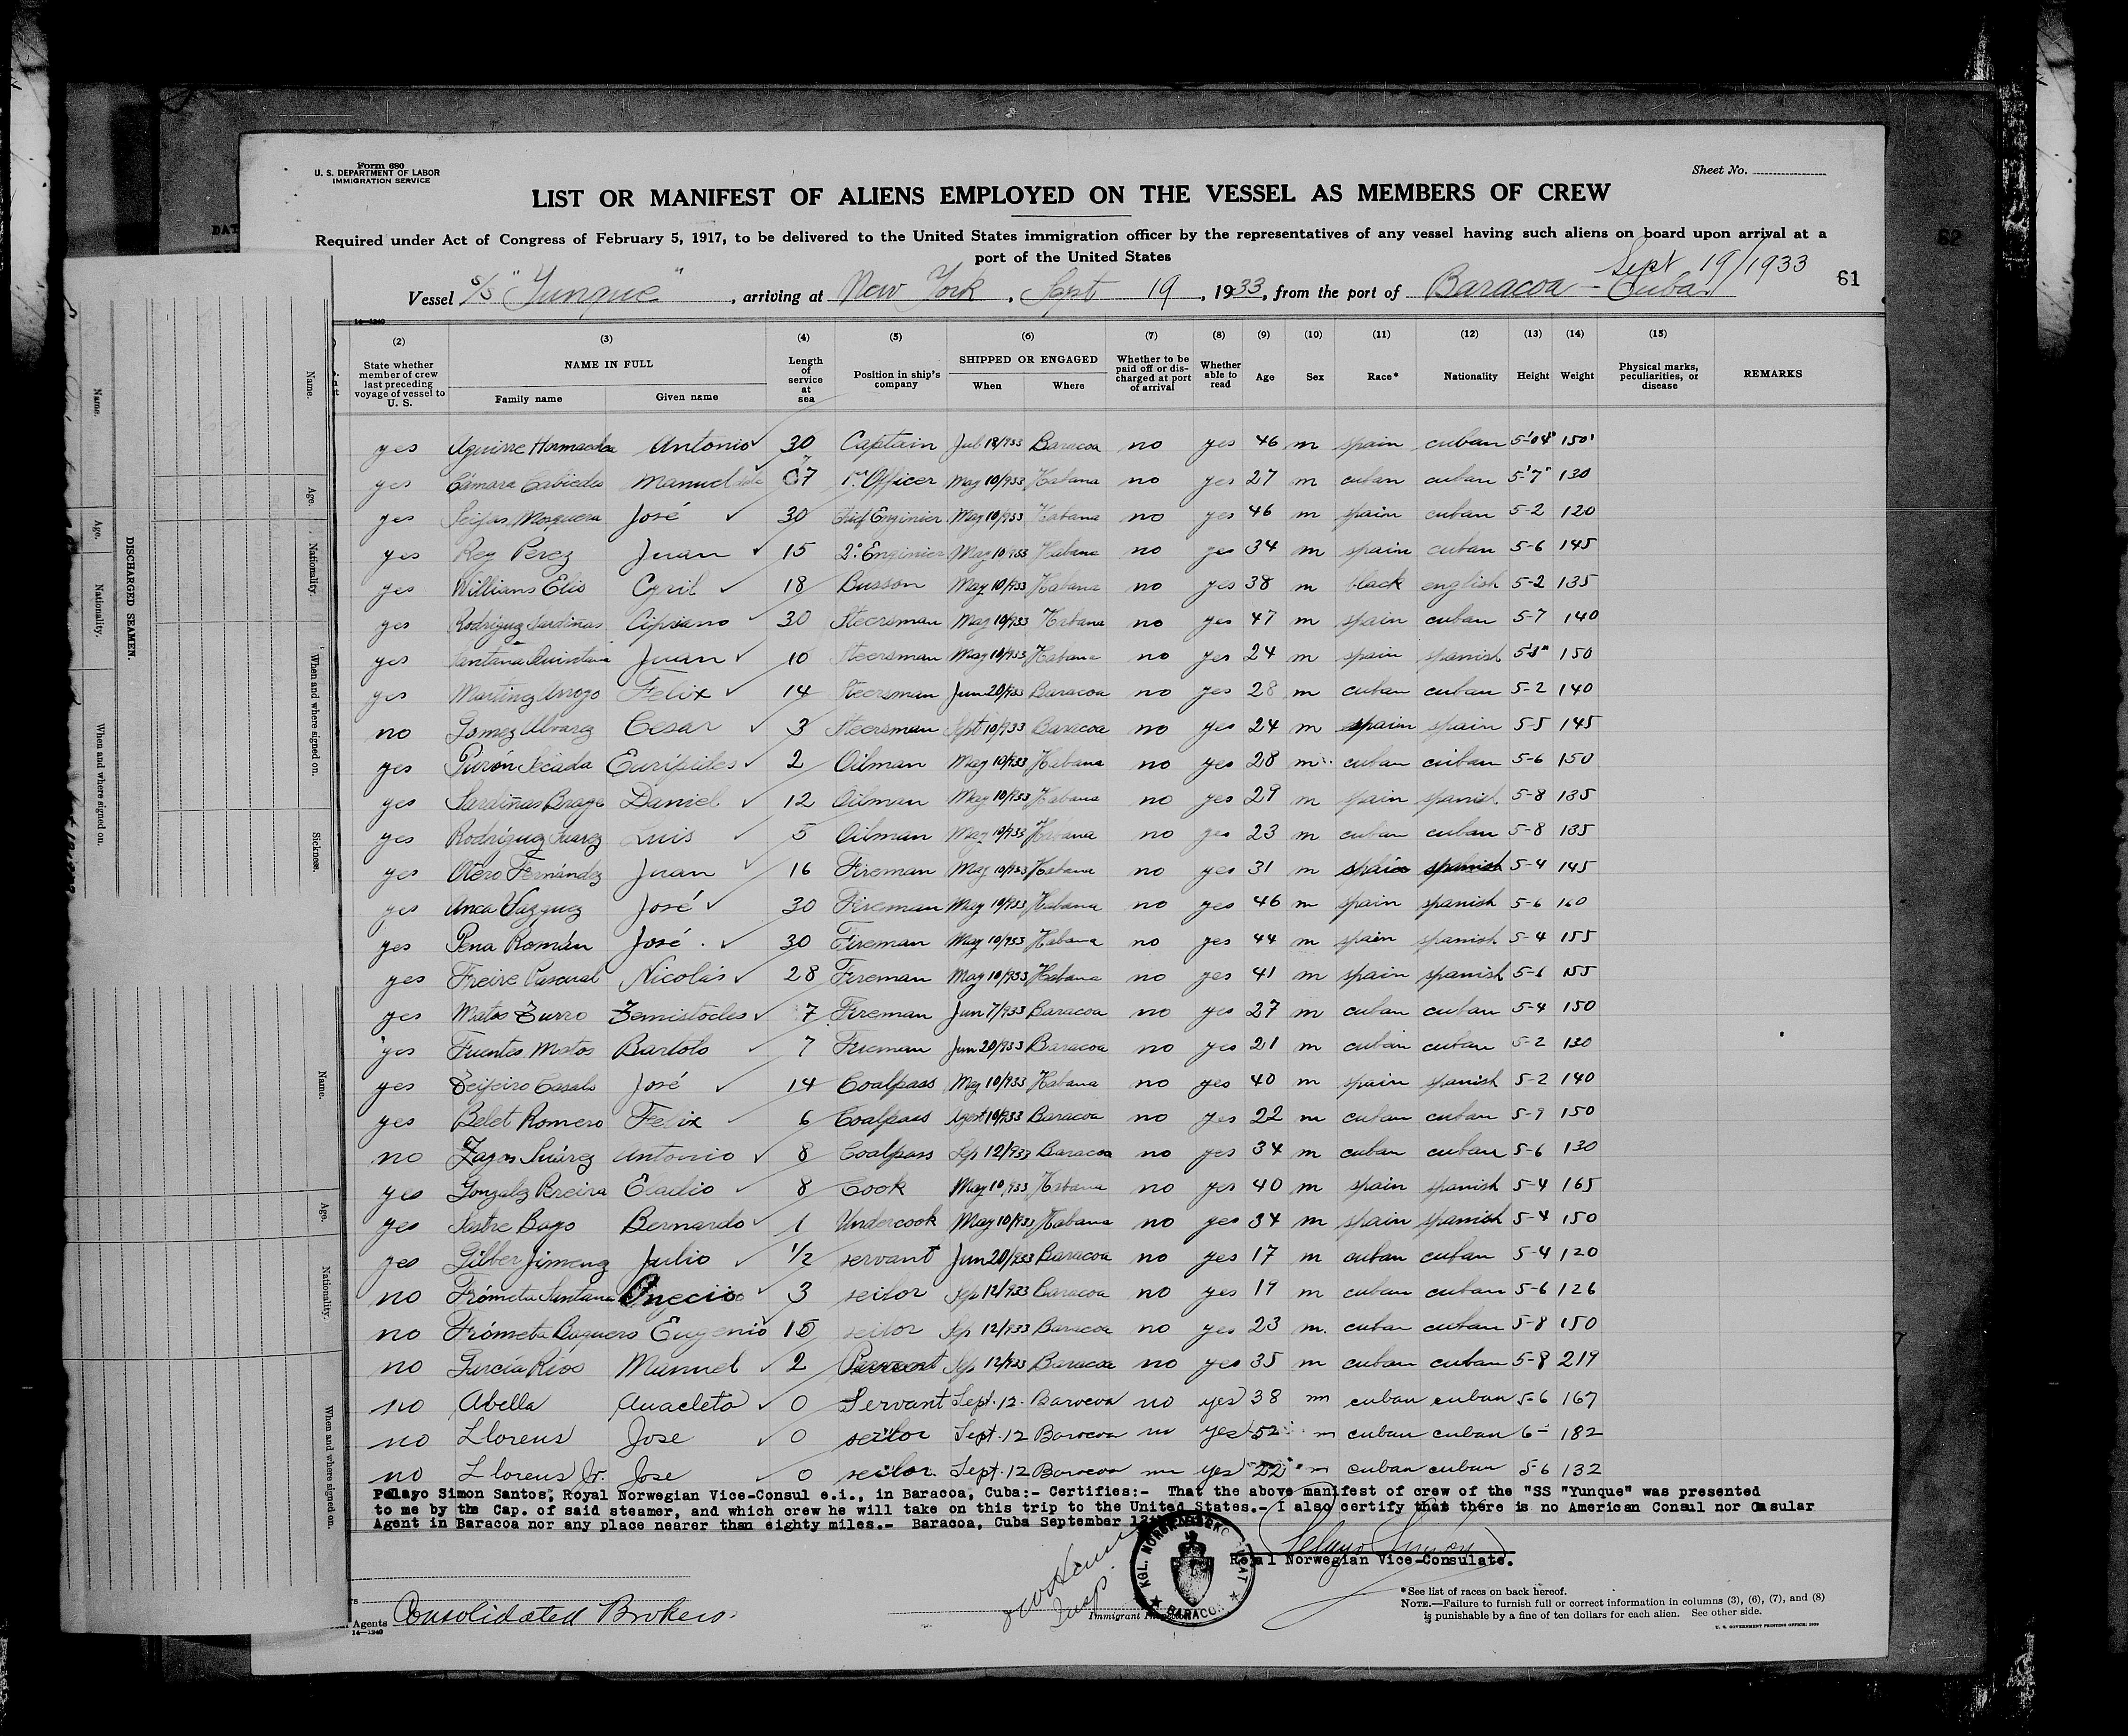 Form 680
U. S. DEPARTMENT OF LABOR
IMMIGRATION SERVICE
Sheet No.
LIST OR MANIFEST OF ALIENS EMPLOYED ON THE VESSEL AS MEMBERS OF CREW
Required under Act of Congress of February 5, 1917, to be delivered to the United States immigration officer by the representatives of any vessel having such aliens on board upon arrival at a
port of the United States
Sept 19/1933
Vessel S/S "Yunque", arriving at New York, Sept 19, 1933, from the port of Baracoa - Cuba.
61
62
DAT
14—1240
(2) (3) (4) (5) (6) (7) (8) (9) (10) (11) (12) (13) (14) (15)
State whether member of crew last preceding voyage of vessel to U. S. NAME IN FULL Family name Given name Length of service at sea Position in ship's company SHIPPED OR ENGAGED When Where Whether to be paid off or discharged at port of arrival Whether able to read Age Sex Race* Nationality Height Weight Physical marks, peculiarities, or disease REMARKS
yes Aguirre Hormaechea Antonio 30 Captain Jul 18/933 Baracoa no yes 46 m spain cuban 5'04" 150
yes Cámara Cabiedes Manuel 07 1er Officer May 10/933 Habana no yes 27 m cuban cuban 5'7" 130
yes Seijas Mosquera José 30 Chief Enginier May 10/933 Habana no yes 46 m spain cuban 5-2 120
yes Rey Perez Juan 15 2º Enginier May 10/933 Habana no yes 34 m spain cuban 5-6 145
yes Willians Elis Cyril 18 Busson May 10/933 Habana no yes 38 m black english 5-2 135
yes Rodriguez Sardiñas Cipriano 30 Steersman May 10/933 Habana no yes 47 m spain cuban 5-7 140
yes Santana Quintana Juan 10 Steersman May 10/933 Habana no yes 24 m spain spanish 150
yes Martinez Arroyo Felix 14 Steersman Jun 20/933 Baracoa no yes 28 m cuban cuban 5-2 140
no Gomez Alvarez Cesar 3 Steersman Sept 10/933 Baracoa no yes 24 m spain spain 5-5 145
yes Purón Secada Euripides 2 Oilman May 10/933 Habana no yes 28 m cuban cuban 5-6 150
yes Sardiñas Brage Daniel 12 Oilman May 10/933 Habana no yes 29 m spain spanish 5-8 135
yes Rodriguez Juarez Luis 5 Oilman May 10/933 Habana no yes 23 m cuban cuban 5-8 135
yes Otero Fernández Juan 16 Fireman May 10/933 Habana no yes 31 m spain spanish 5-4 145
yes Anca Vazquez José 30 Fireman May 10/933 Habana no yes 46 m spain spanish 5-6 160
yes Pena Román José 30 Fireman May 10/933 Habana no yes 44 m spain spanish 5-4 155
yes Freire Pascual Nicolás 28 Fireman May 10/933 Habana no yes 41 m spain spanish 5-6 155
yes Matos Turro Temistocles 7 Fireman Jun 7/933 Baracoa no yes 27 m cuban cuban 5-4 150
yes Fuentes Matos Bartolo 7 Fireman Jun 20/933 Baracoa no yes 21 m cuban cuban 5-2 130
yes Teijeiro Casals José 14 Coalpass May 10/933 Habana no yes 40 m spain spanish 5-2 140
yes Belet Romero Felix 6 Coalpass Agost 10/933 Baracoa no yes 22 m cuban cuban 5-9 150
no Zagas Suárez Antonio 8 Coalpass Sep 12/933 Baracoa no yes 34 m cuban cuban 5-6 130
yes Gonzalez Pereira Eladio 8 Cook May 10/933 Habana no yes 40 m spain spanish 5-4 165
yes Sastre Bago Bernardo 1 Undercook May 10/933 Habana no yes 34 m spain spanish 5-4 150
yes Gilber Jimenez Julio 1/2 servant Jun 20/933 Baracoa no yes 17 m cuban cuban 5-4 120
no Frómeta Santana 3 seilor Sep 12/933 Baracoa no yes 19 m cuban cuban 5-6 126
no Frómeta Baquero Eugenio 15 seilor Sep 12/933 Baracoa no yes 23 m. cuban cuban 5-8 150
no García Rios Manuel 2 Servant Sep 12/933 Baracoa no yes 35 m cuban cuban 5-8 219
no Abella Anacleto 0 Servant Sept. 12. Baracoa no yes 38 m cuban cuban 5-6 167
no Llorens Jose 0 seilor Sept. 12 Baracoa no yes 52 m cuban cuban 6- 182
no Llorens Jr. Jose 0 seilor. Sept. 12 Baracoa no yes 22 m cuban cuban 5-6 132
Pelayo Simon Santos, Royal Norwegian Vice-Consul e.i., in Baracoa, Cuba:- Certifies:- That the above manifest of crew of the "SS "Yunque" was presented
to me by the Cap. of said steamer, and which crew he will take on this trip to the United States.- I also certify that there is no American Consul nor Casular
Agent in Baracoa nor any place nearer than eighty miles.- Baracoa, Cuba September
Pelayo Simon
Royal Norwegian Vice-Consulate.
KGL. NORSK
BARACOA
Insp.
Immigrant
Agents Consolidated Brokers.
14—1240
*See list of races on back hereof.
NOTE.—Failure to furnish full or correct information in columns (3), (6), (7), and (8)
is punishable by a fine of ten dollars for each alien. See other side.
U. S. GOVERNMENT PRINTING OFFICE: 1930
DISCHARGED SEAMEN.
Name. Age. Nationality. When and where signed on.
Name. Age. Nationality. When and where signed on. Sickness.
Name. Age. Nationality. When and where signed on.